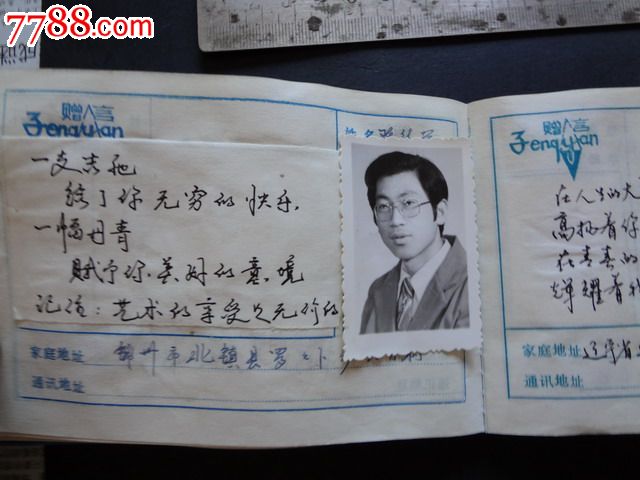 7788.com
赠人言
Zengyan
姓名
一支吉他
给了你无穷的快乐,
一幅丹青
赋予你美好的意境
记住:艺术的享受是无价的
家庭地址 锦州市北镇县罗
通讯地址
赠人言
Zengyan
在人生的大
高扬着你
在青春的
辉耀着
家庭地址 辽宁省
通讯地址